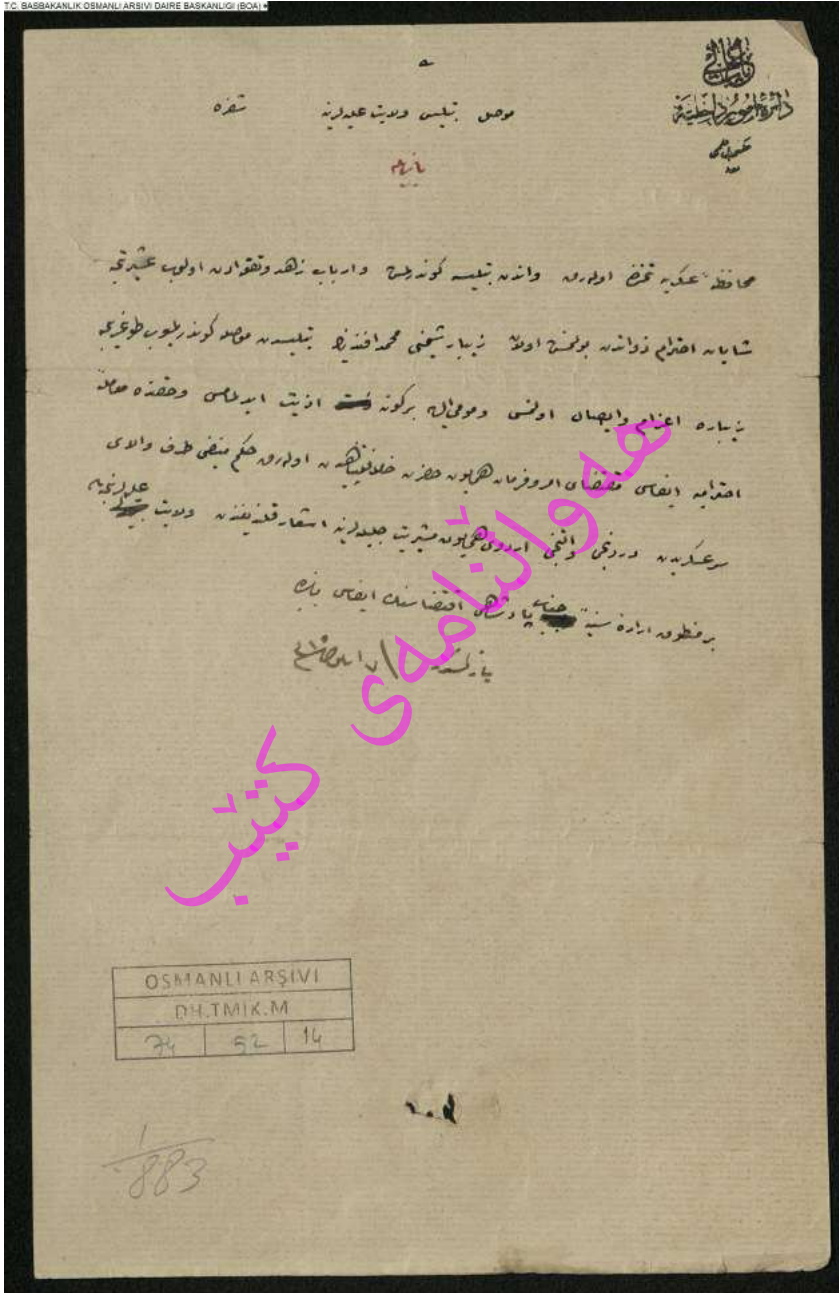 T.C. BASBAKANLIK OSMANLI ARSIVI DAIRE BASKANLIGI (BOA)
باب عالی
دائرهٔ امور داخلیه
موصل بتلیس ولایت علیه‌لرینه شفره
محافظهٔ عسکریه تحتنده اولەرق واندن بتلیسه کوندرلمش وارباب زهد وتقوادن اولوب عشیرتجه
شایان احترام ذواتدن بولنمش اولان زیبار شیخی محمد افندینك بتلیسدن موصله کوندریلوب طوغریجه
زیباره اعزام وایصال اولنمسی ومومی‌الیه برکونه اذیت ایدلمامسی وحقنده معاملهٔ
احترامیه ایفاسی مقتضای امر وفرمان همایون حضرت خلافتپناهیدن اولەرق حکم منیفی طرف والای
سرعسکریدن دردنجی والتنجی اردوی همایون مشیریت جلیله‌لرینه اشعار قلندیغندن ولایت علیه‌لرنجه
بر منطوق ارادهٔ سنیهٔ جناب پادشاهی اقتضاسنك ایفاسی بابنده
هەواڵنامەی کتێب
OSMANLI ARŞIVI
DH.TMIK.M
74 52 14
1/883